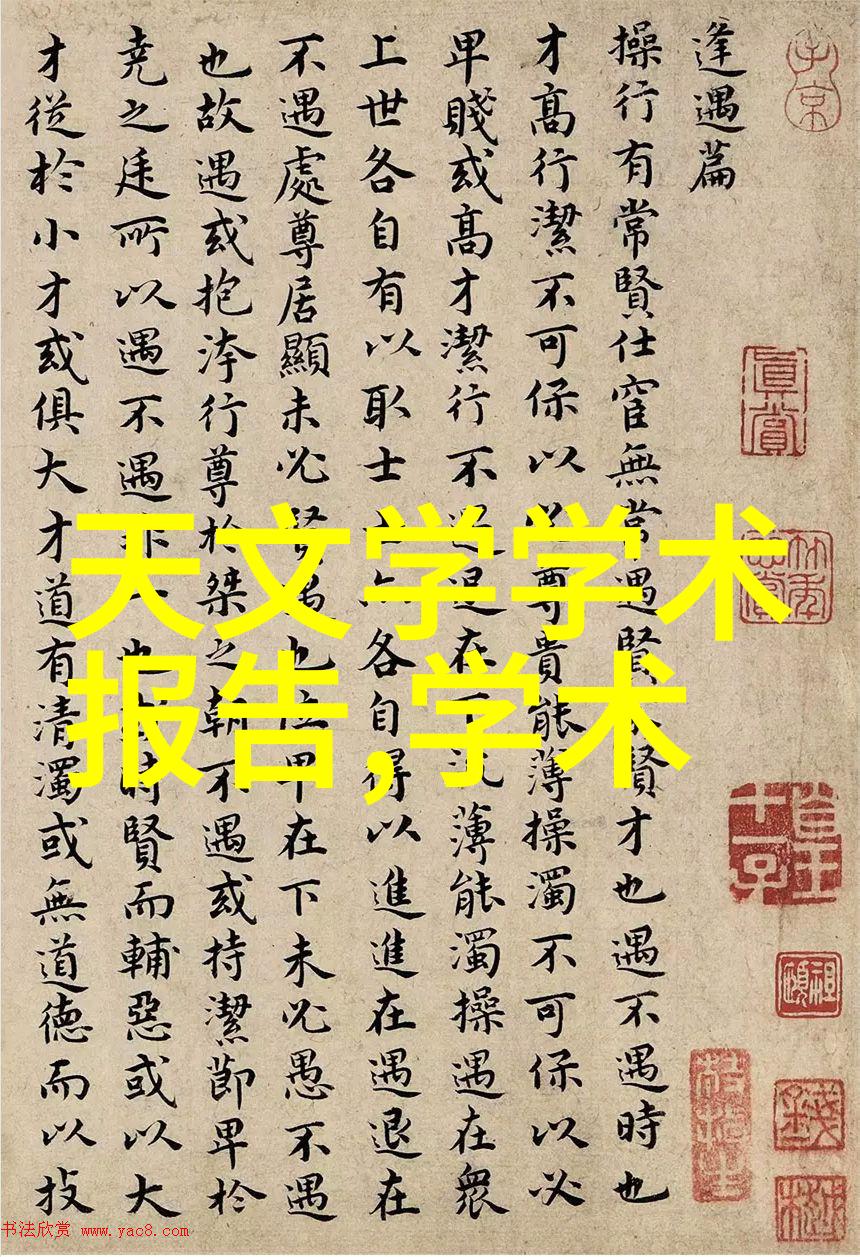 逢遇篇
操行有常賢仕宦無常遇賢不賢才也遇不遇時也
才高行潔不可保以必尊貴能薄操濁不可保以必
卑賤或高才潔行不遇退在下流薄能濁操遇在衆
上世各自有以取士士亦各自得以進進在遇退在
不遇處尊居顯未必賢遇也位卑在下未必愚不遇
也故遇或抱洿行尊於桀之朝不遇或持潔節卑於
堯之廷所以遇不遇非一也或時賢而輔惡或以大
才從於小才或俱大才道有清濁或無道德而以技
子京
真賞
天文学学术
报告,学术
书法欣赏 www.yac8.com